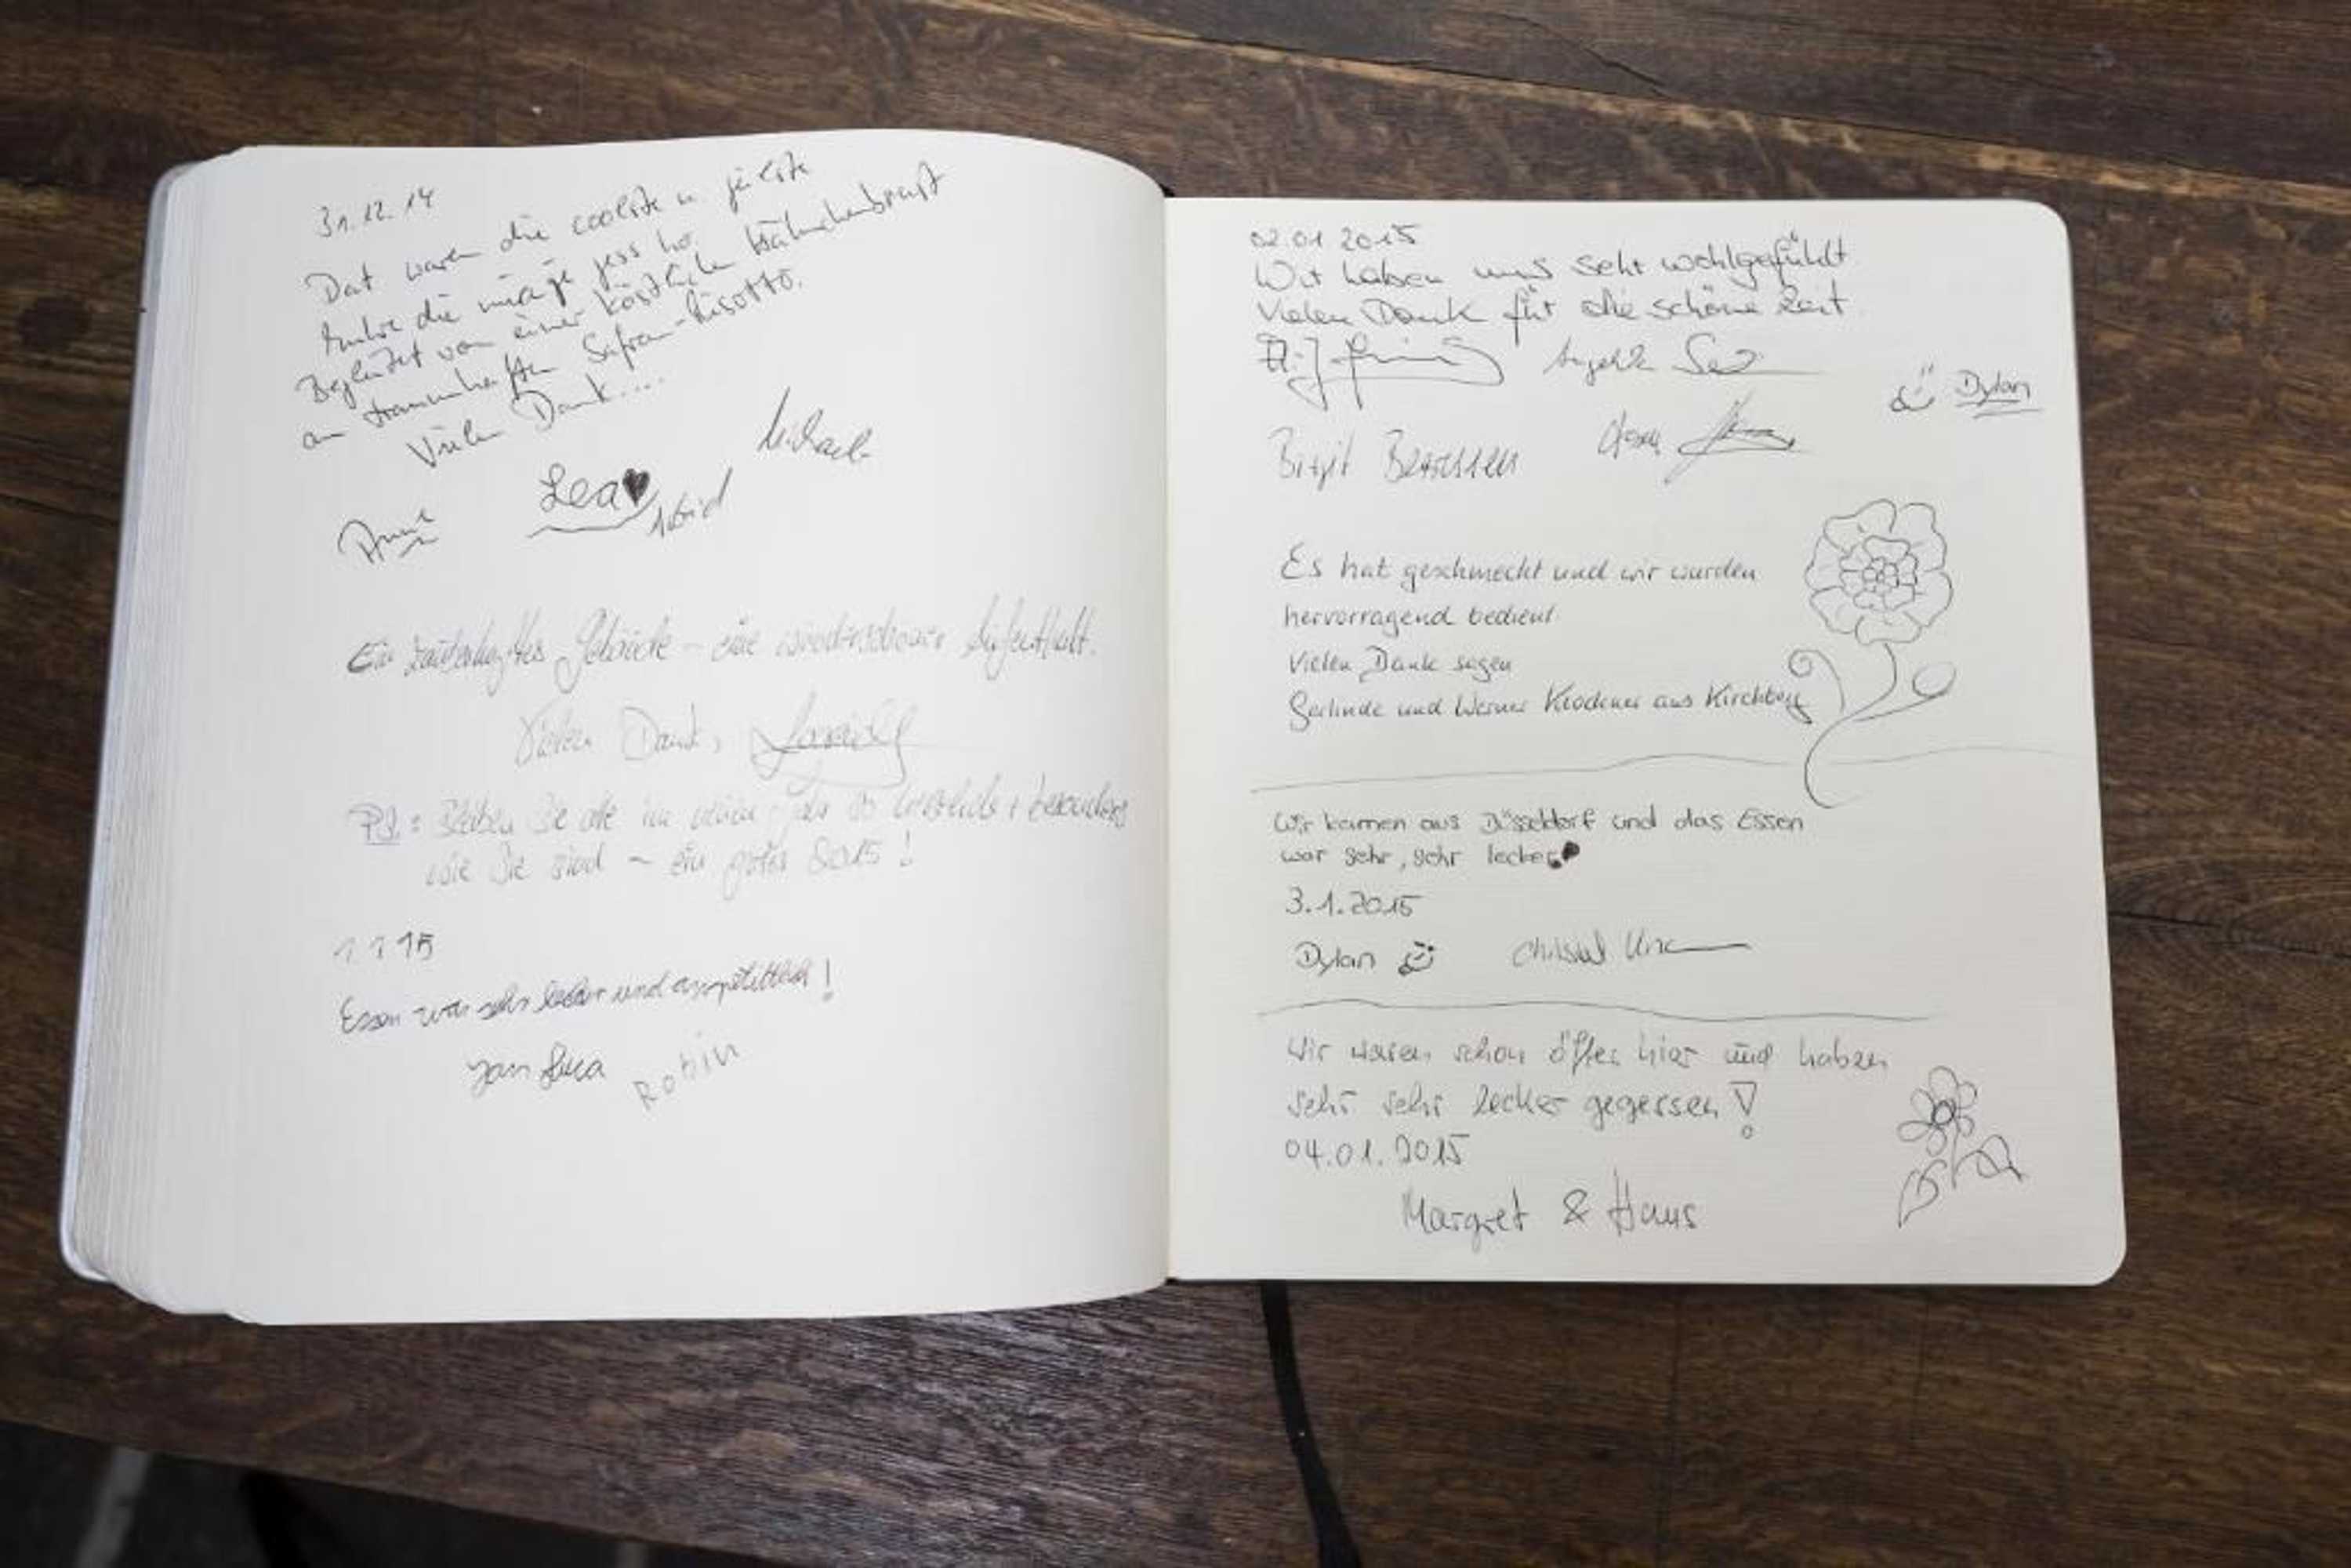 31.12.14
Dat waren die coolste u.
die jess ho.
von einer köstlichen Hähnchenbrust
an traumhaften Safran-Risotto.
Vielen Dank....
Michael
Lea♥
Anne
Ein zauberhaftes Gebäude – ein wunderschöner Aufenthalt.
Vielen Dank,
PS: Bleiben Sie alle im neuen Jahr so + besonders
wie Sie sind – ein gutes 2015!
1 1 15
Essen war sehr lecker und appetittlich!
Jan Luca Robin
02.01 2015
Wir haben uns sehr wohlgefühlt
Vielen Dank für die schöne Zeit.
Angelika
Dylan
Birgit
Es hat geschmeckt und wir wurden
hervorragend bedient.
Vielen Dank sagen
Gerlinde und Werner aus Kirchberg
Wir kamen aus Düsseldorf und das Essen
war sehr, sehr lecker
3.1.2015
Dylan Christel
Wir waren schon öfter hier und haben
sehr sehr lecker gegessen!
04.01.2015
Margret & Hans